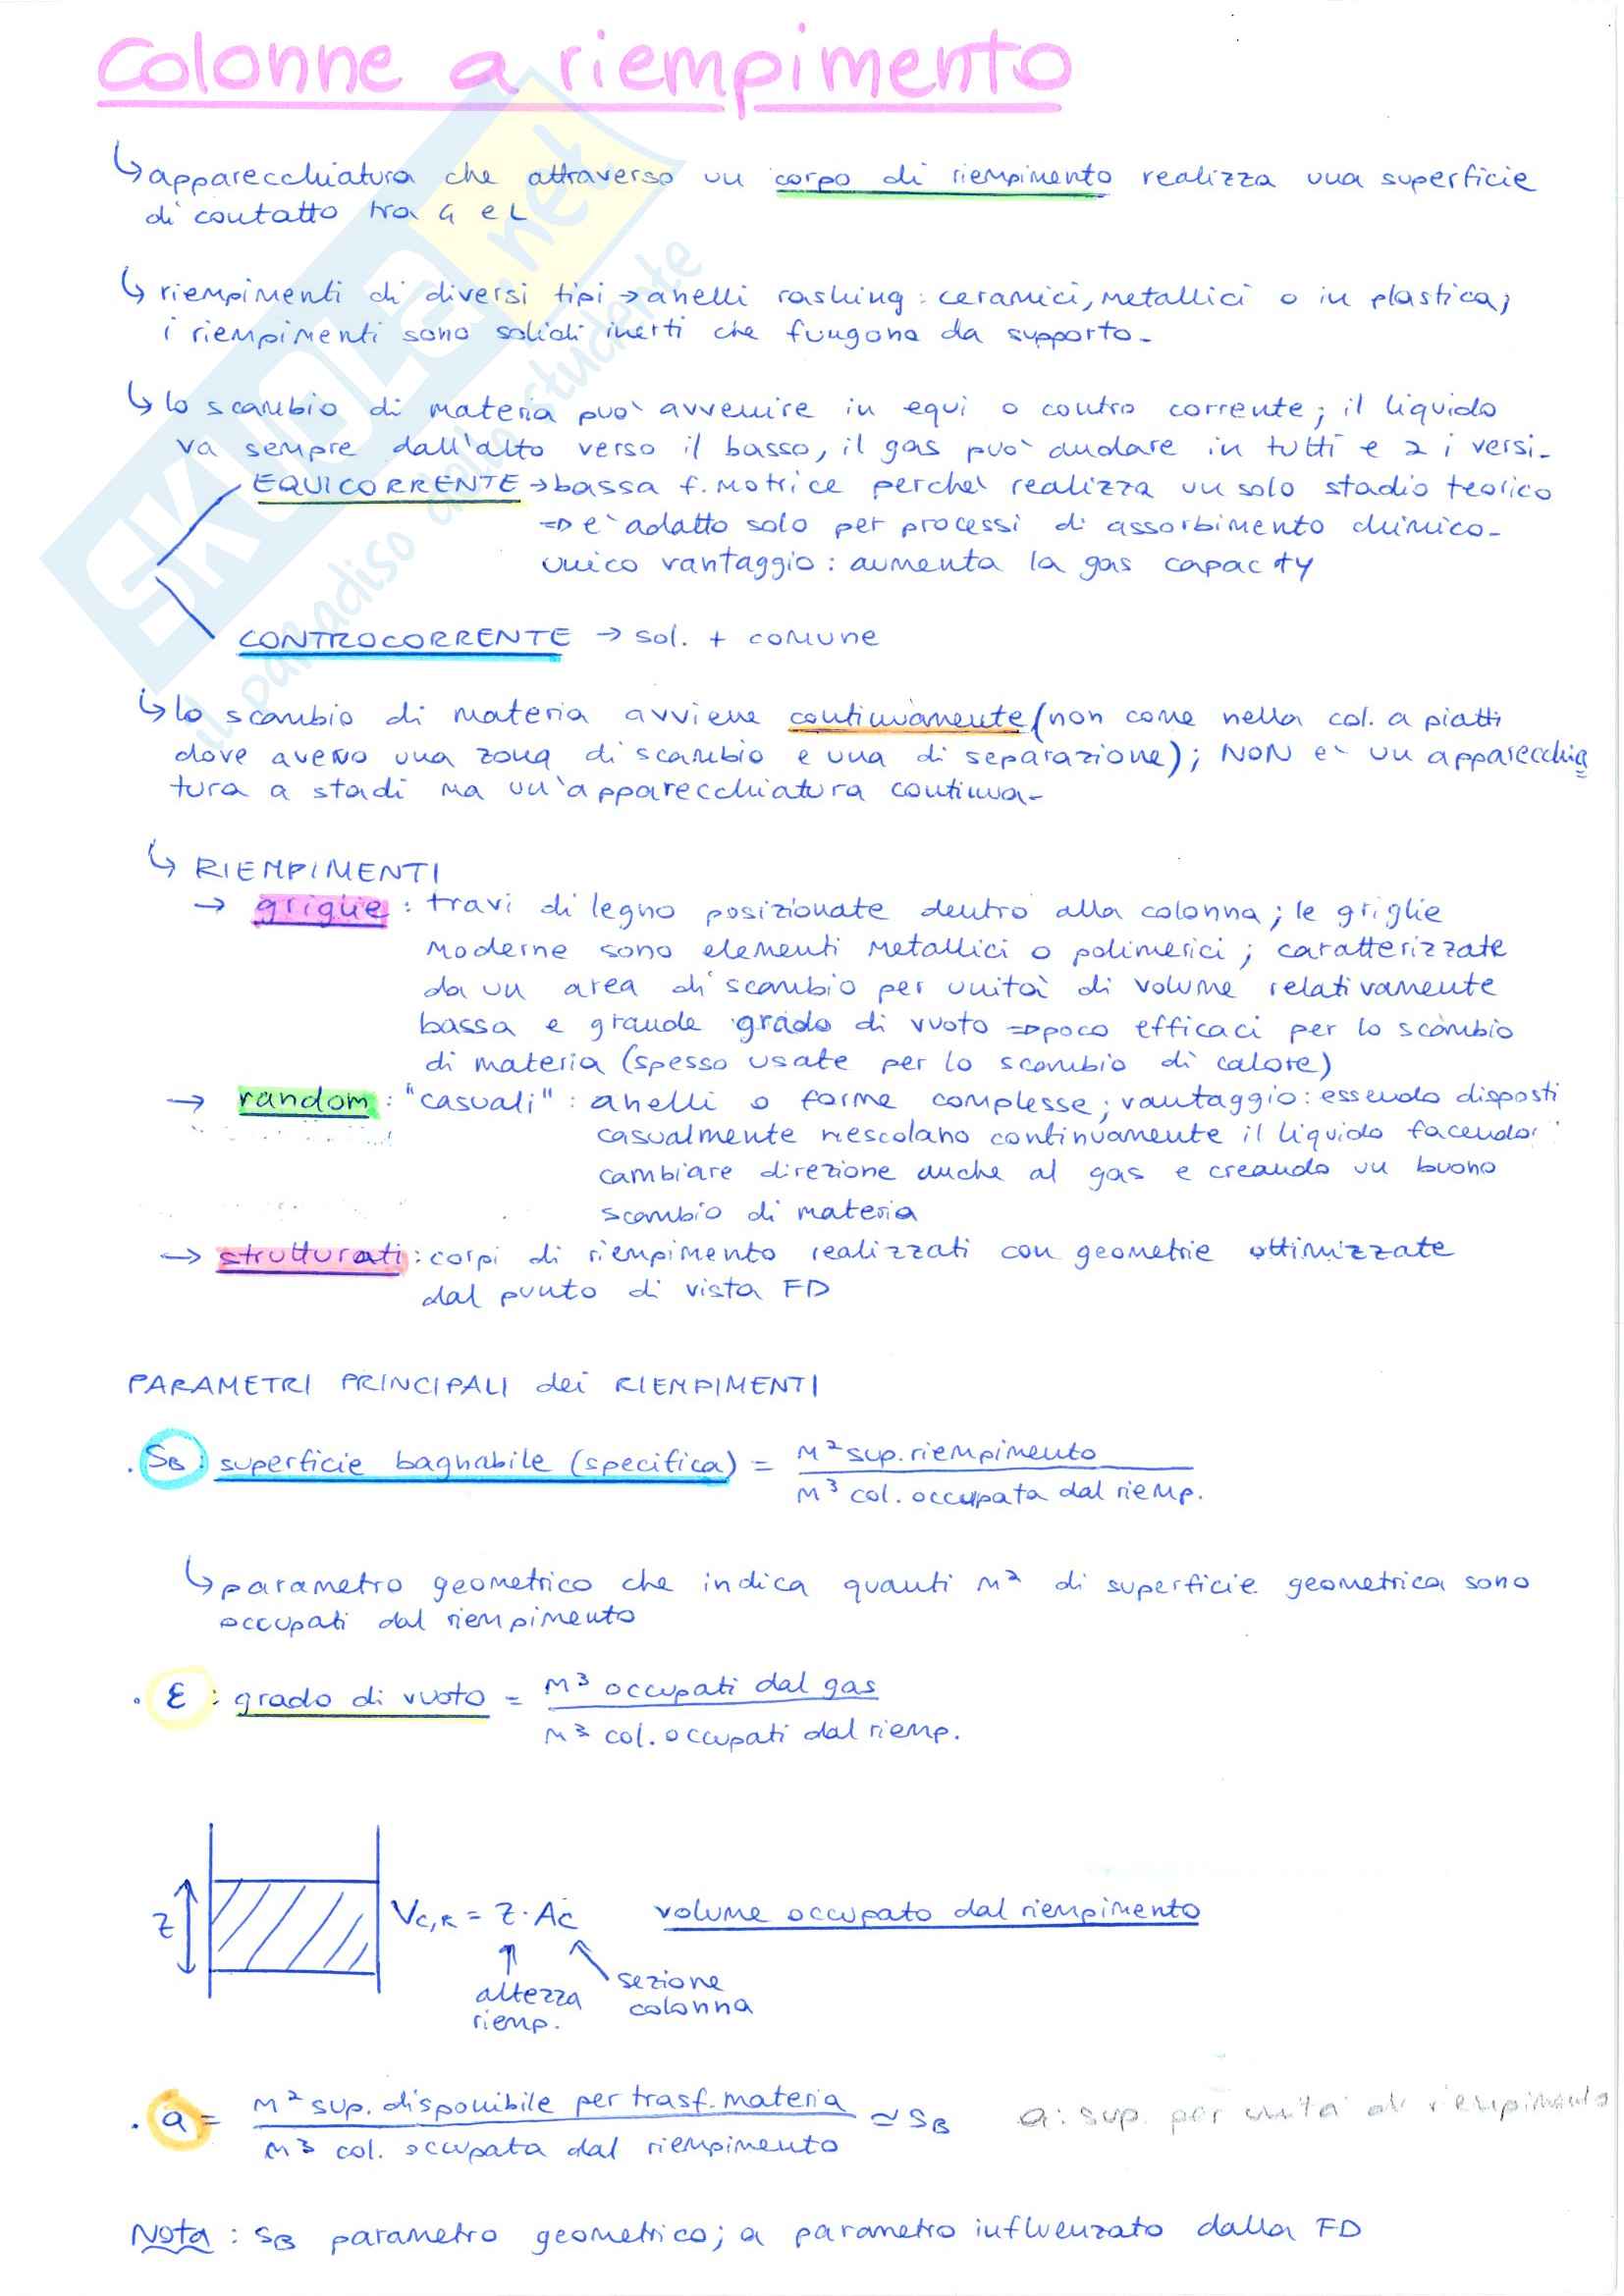 Colonne a riempimento
↳ apparecchiatura che attraverso un corpo di riempimento realizza una superficie
di contatto tra G e L
↳ riempimenti di diversi tipi → anelli rashing: ceramici, metallici o in plastica;
i riempimenti sono solidi inerti che fungono da supporto.
↳ lo scambio di materia può avvenire in equi o contro corrente; il liquido
va sempre dall'alto verso il basso, il gas può andare in tutti e 2 i versi.
EQUICORRENTE → bassa f. motrice perché realizza un solo stadio teorico
⇒ è adatto solo per processi di assorbimento chimico.
unico vantaggio: aumenta la gas capacty
CONTROCORRENTE → sol. + comune
↳ lo scambio di materia avviene continuamente (non come nella col. a piatti
dove avevo una zona di scambio e una di separazione); NON è un apparecchia
tura a stadi ma un'apparecchiatura continua.
↳ RIEMPIMENTI
→ griglie: travi di legno posizionate dentro alla colonna; le griglie
moderne sono elementi metallici o polimerici; caratterizzate
da un area di scambio per unità di volume relativamente
bassa e grande grado di vuoto ⇒ poco efficaci per lo scambio
di materia (spesso usate per lo scambio di calore)
→ random: "casuali": anelli o forme complesse; vantaggio: essendo disposti
casualmente mescolano continuamente il liquido facendo
cambiare direzione anche al gas e creando un buono
scambio di materia
→ strutturati: corpi di riempimento realizzati con geometrie ottimizzate
dal punto di vista FD
PARAMETRI PRINCIPALI dei RIEMPIMENTI
. SB: superficie bagnabile (specifica) = m² sup. riempimento
m³ col. occupata dal riemp.
↳ parametro geometrico che indica quanti m² di superficie geometrica sono
occupati dal riempimento
. ε: grado di vuoto = m³ occupati dal gas
m³ col. occupati dal riemp.
z
Vc,R = z · Ac volume occupato dal riempimento
altezza
riemp.
sezione
colonna
. a = m² sup. disponibile per trasf. materia
m³ col. occupata dal riempimento
≃ SB a: sup. per unità di riempimento
Nota: SB parametro geometrico; a parametro influenzato dalla FD
SKUOLA.net
il paradiso dello studente